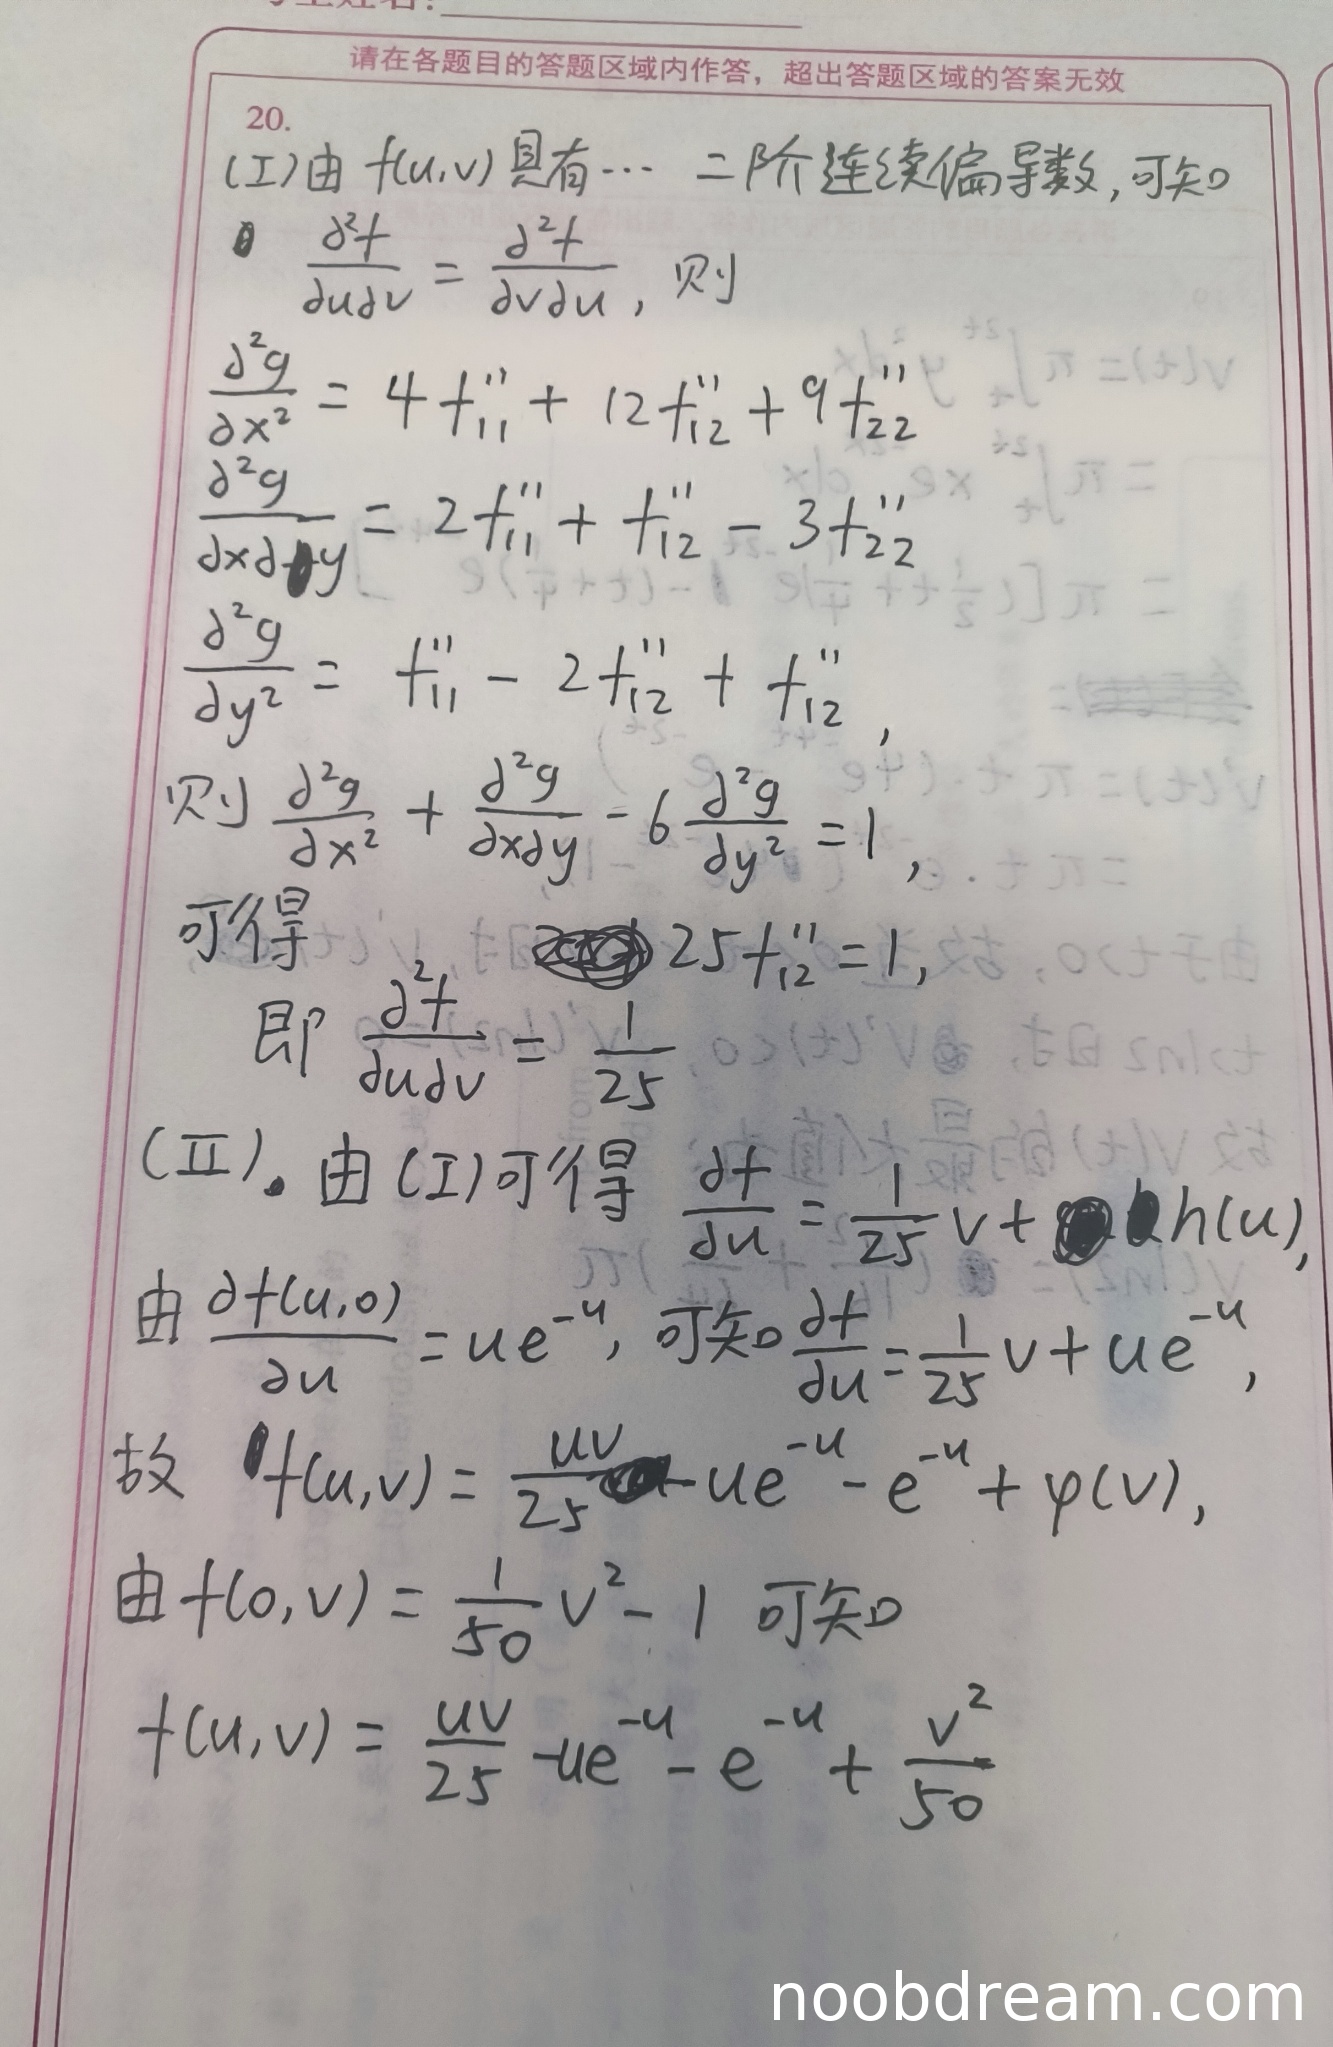 请在各题目的答题区域内作答，超出答题区域的答案无效
20.
(I)由 f(u,v) 具有… 二阶连续偏导数,可知
∂²f/∂u∂v = ∂²f/∂v∂u , 则
∂²g/∂x² = 4f₁₁'' + 12f₁₂'' + 9f₂₂''
∂²g/∂x∂y = 2f₁₁'' + f₁₂'' - 3f₂₂''
∂²g/∂y² = f₁₁'' - 2f₁₂'' + f₁₂'' ,
则 ∂²g/∂x² + ∂²g/∂x∂y - 6 ∂²g/∂y² = 1 ,
可得 25f₁₂'' = 1,
即 ∂²f/∂u∂v = 1/25
(II). 由(I)可得 ∂f/∂u = 1/25 v + h(u),
由 ∂f(u,0)/∂u = ue^{-u}, 可知 ∂f/∂u = 1/25 v + ue^{-u},
故 f(u,v) = uv/25 - ue^{-u} - e^{-u} + φ(v),
由 f(0,v) = 1/50 v² - 1 可知
f(u,v) = uv/25 - ue^{-u} - e^{-u} + v²/50
noobdream.com